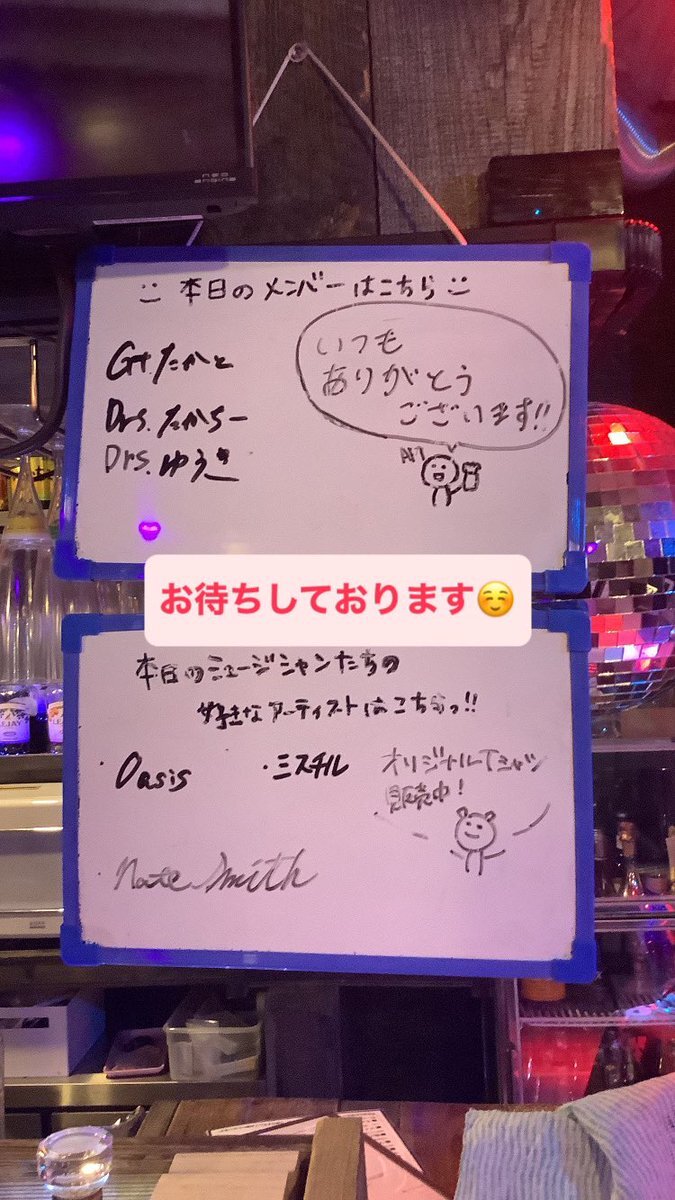 本日のメンバーはこちら
Gt.たかと
Drs.たからー
Drs.ゆうき
いつも
ありがとう
ございます!!
お待ちしております☺️
本日のミュージシャンたちの
好きなアーティストはこちらっ!!
・Oasis
・ミスチル
オリジナルTシャツ
販売中!
Nate Smith